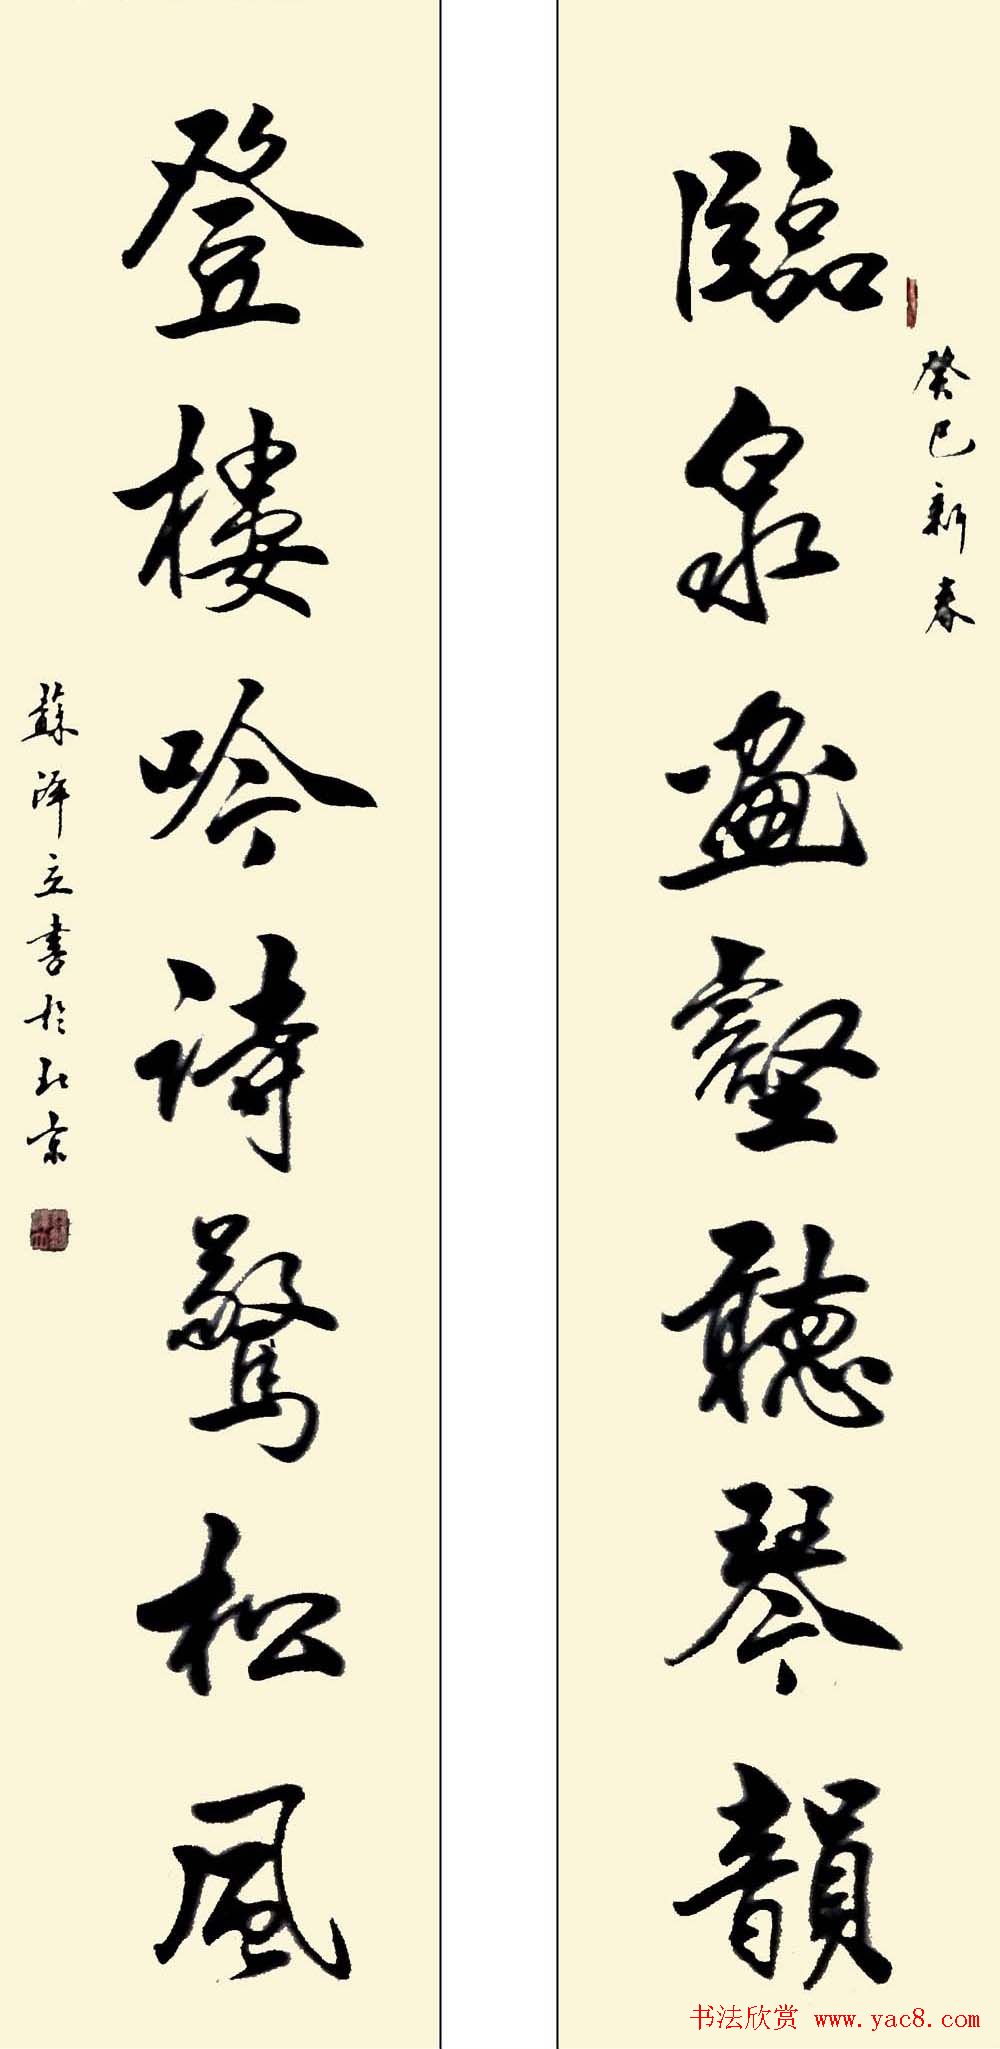 癸巳新春
臨泉畫壑聽琴韻
登樓吟詩驚松風
蘇澤立書於北京
书法欣赏 www.yac8.com